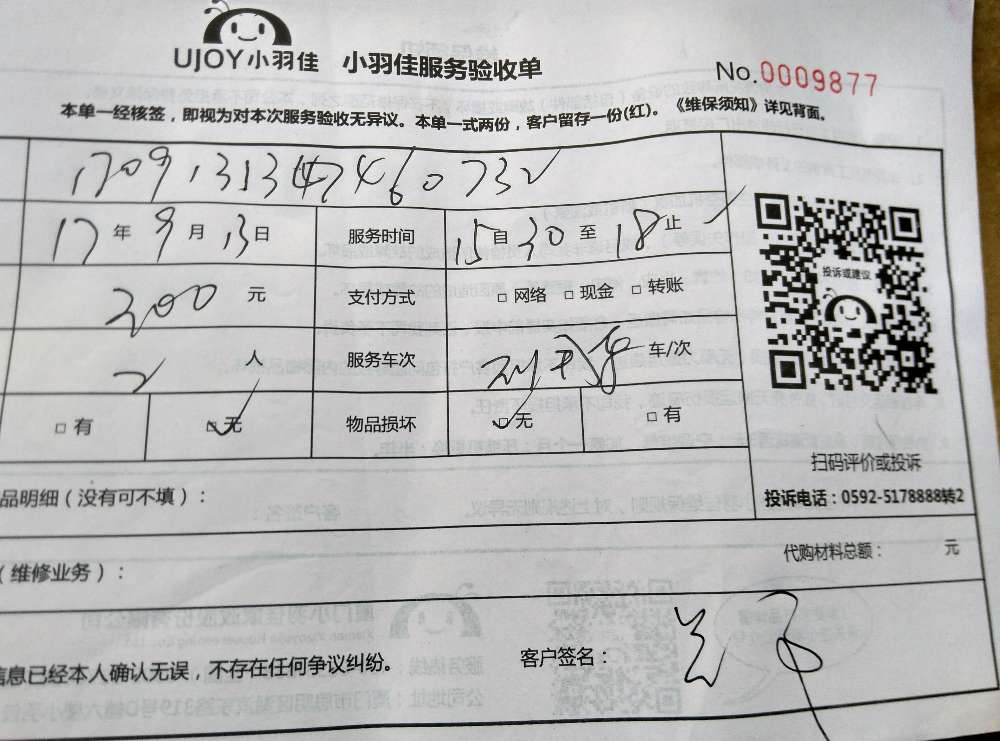 UJOY小羽佳 小羽佳服务验收单
No.0009877
本单一经核签，即视为对本次服务验收无异议。本单一式两份，客户留存一份(红)。《维保须知》详见背面。
17年9月13日 服务时间 15自30至18止
200元 支付方式 □网络 □现金 □转账
2人 服务车次 车/次
□有 □无 物品损坏 □无 □有
投诉或建议
扫码评价或投诉
投诉电话：0592-5178888转2
品明细（没有可不填）：
代购材料总额： 元
（维修业务）：
信息已经本人确认无误，不存在任何争议纠纷。
客户签名：